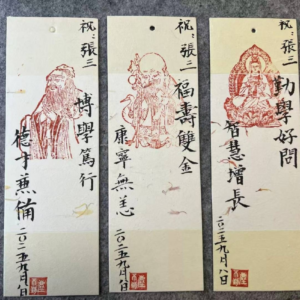 祝：張三
博學篤行
德才兼備
二〇二五九月八日
祝：張三
福壽雙全
康寧無恙
二〇二五九月八日
祝：張三
勤學好問
智慧增長
二〇二五九月八日